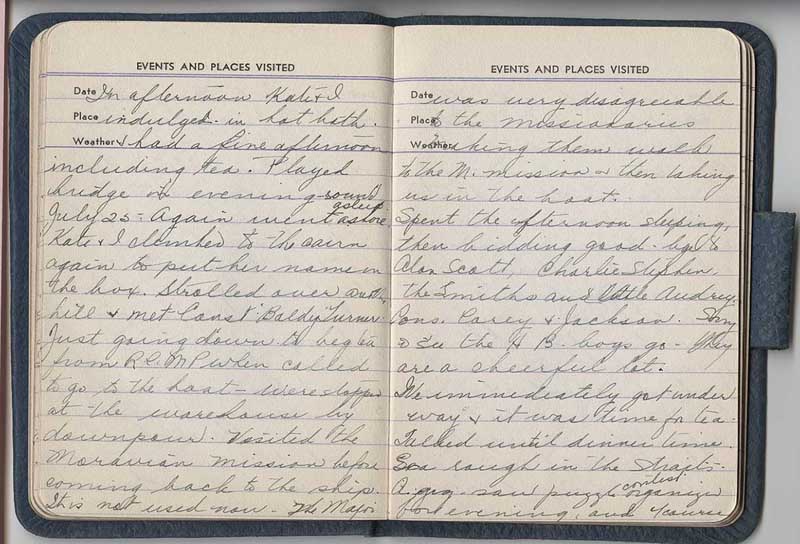 EVENTS AND PLACES VISITED
Date In afternoon Kate & I
Place indulged in hot bath.
Weather & had a fine afternoon
including tea. Played
bridge in evening
July 25 - Again went ashore
Kate & I climbed to the cairn
again to put her name on
the box. Strolled over another
hill & met Const. Baldy Turner.
Just going down to beg tea
from R.C.M.P when called
to go to the boat - were stopped
at the warehouse by
downpour. Visited the
Moravian mission before
coming back to the ship.
It is not used now. The Major
EVENTS AND PLACES VISITED
Date was very disagreeable
Place to the missionaries
Weather making them walk
to the M. mission & then taking
us in the boat.
Spent the afternoon sleeping,
then bidding good-bye to
Alan Scott, Charlie Stephen,
the Smiths and little Audrey,
Cons. Carey & Jackson. Sorry
to see the H B. boys go - they
are a cheerful lot.
We immediately got under
way & it was time for tea.
Talked until dinner time.
Sea rough in the straits.
A jig saw puzzle contest organized
for evening, and 4 course